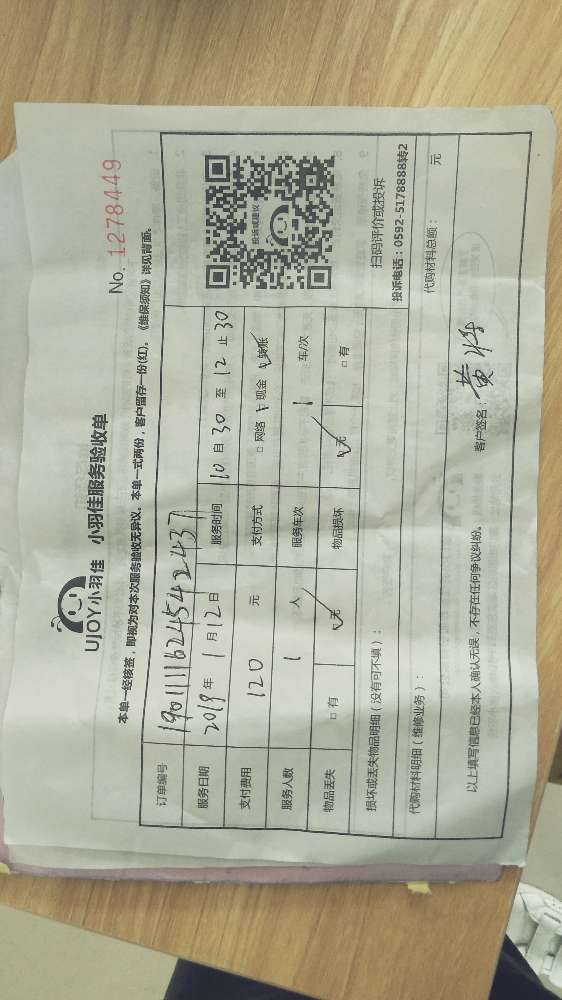 UJOY小羽佳 小羽佳服务验收单
No. 1278449
本单一经核签，即视为对本次服务验收无异议。本单一式两份，客户留存一份(红)。《维保须知》详见背面。
订单编号 1901111624542437
服务日期 2019年1月12日 服务时间 10自30至12止30
支付费用 120 元 支付方式 □网络 □现金 □转账
服务人数 1 人 服务车次 1 车/次
物品丢失 □有 □无 物品损坏 □无 □有
投诉或建议
扫码评价或投诉
投诉电话：0592-5178888转2
损坏或丢失物品明细（没有可不填）：
代购材料明细（维修业务）： 代购材料总额： 元
以上填写信息已经本人确认无误，不存在任何争议纠纷。 客户签名： 黄